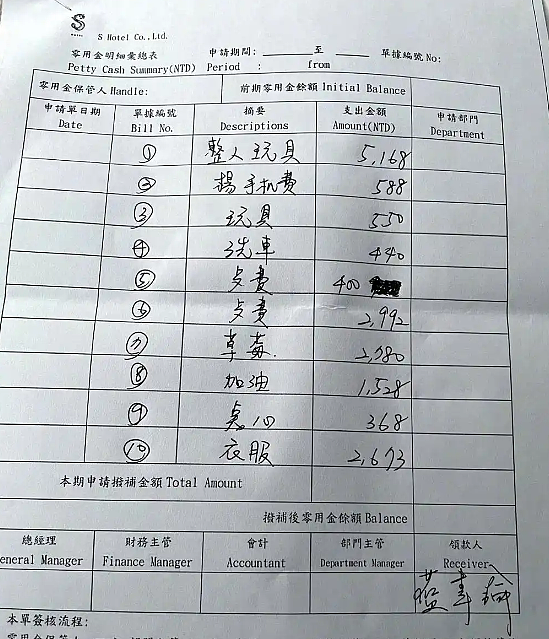 S
S Hotel Co.,Ltd.
零用金明細彙總表 申請期間: 至 單據編號 No:
Petty Cash Summary(NTD) Period : from
零用金保管人 Handle: 前期零用金餘額 Initial Balance
申請單日期 單據編號 摘要 支出金額 申請部門
Date Bill No. Descriptions Amount(NTD) Department
① 整人玩具 5,168
② 楊手机費 588
③ 玩具 550
④ 洗車 440
⑤ 点費 400
⑥ 点費 2,992
⑦ 草莓. 2,380
⑧ 加油 1,528
⑨ 点心 368
⑩ 衣服 2,673
本期申請撥補金額 Total Amount
撥補後零用金餘額 Balance
總經理 財務主管 會計 部門主管 領款人
eneral Manager Finance Manager Accountant Department Manager Receiver
本單簽核流程: